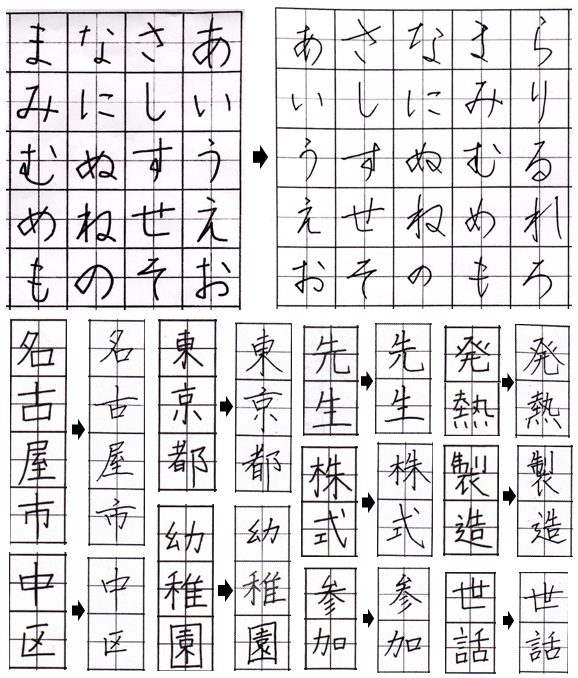 あいうえお
さしすせそ
なにぬねの
まみむめも
あいうえお
さしすせそ
なにぬねの
まみむめも
らりるれろ
名古屋市
名古屋市
東京都
東京都
先生
先生
発熱
発熱
株式
株式
製造
製造
中区
中区
幼稚園
幼稚園
参加
参加
世話
世話